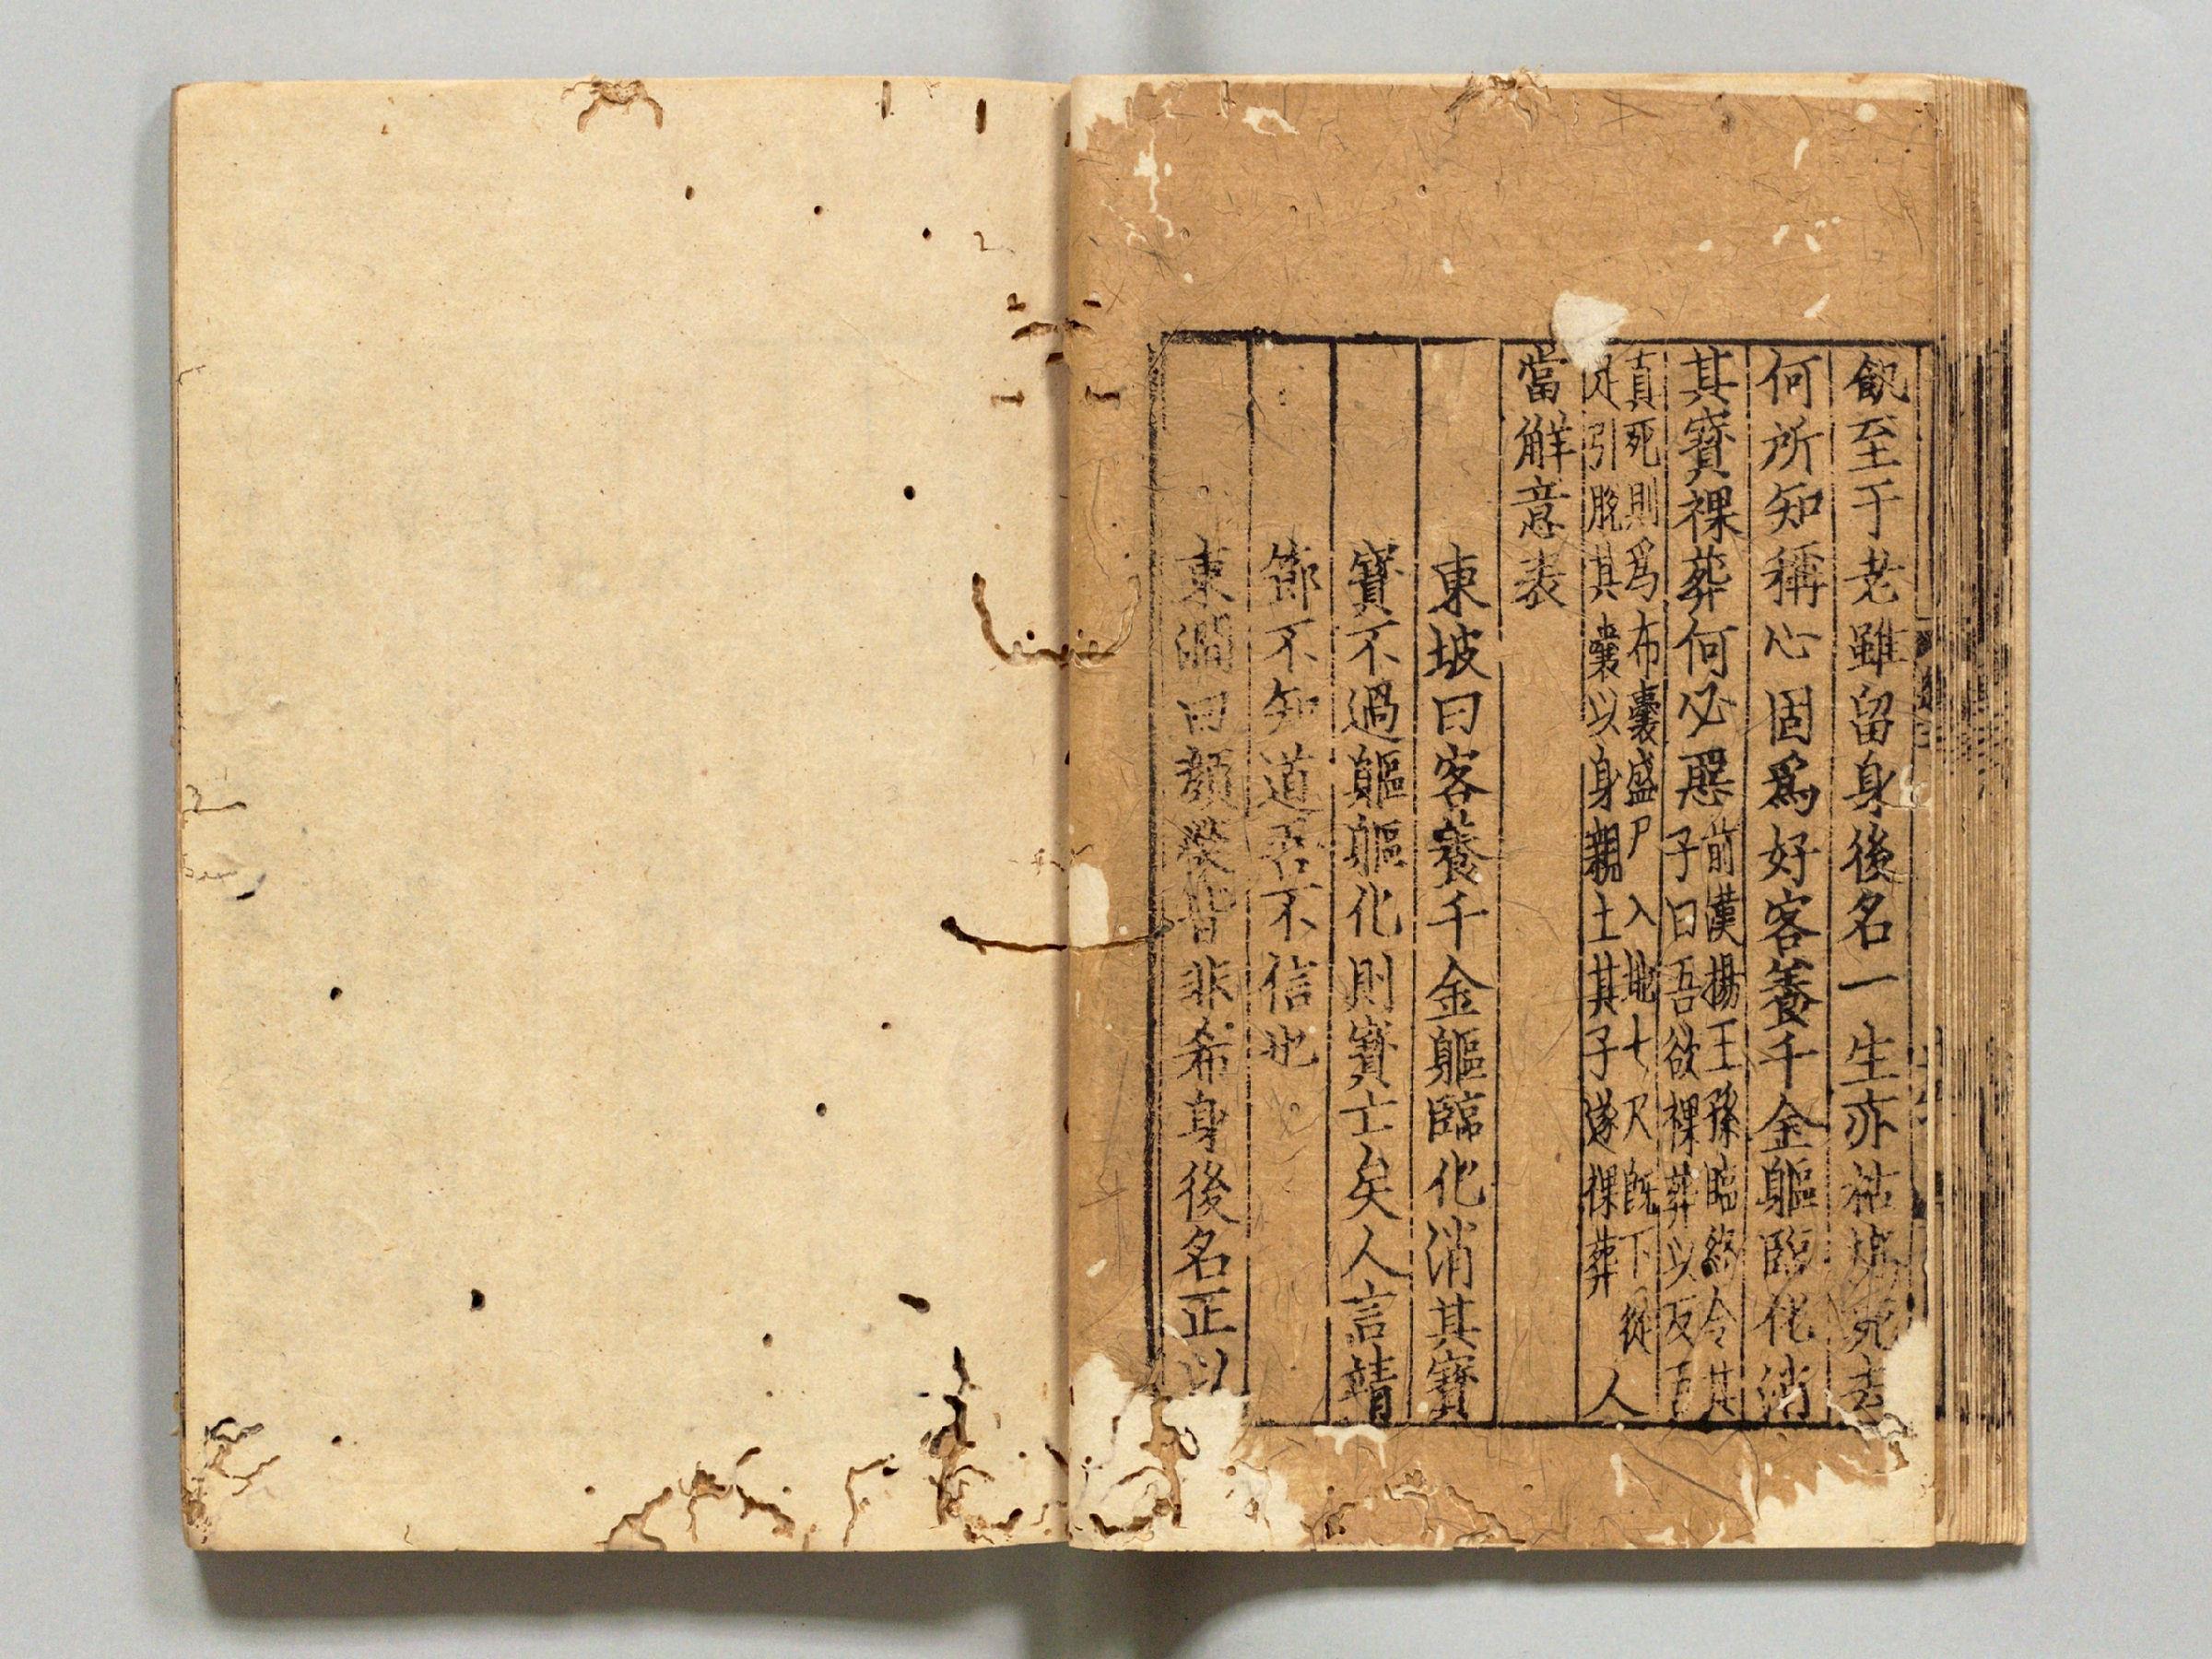 飢至于老雖留身後名一生亦枯槁死去
何所知稱心固爲好客養千金軀臨化消
其寶裸葬何必惡
前漢楊王孫臨終令其
子曰吾欲裸葬以反吾
真死則爲布囊盛尸入地七尺既下從
足引脫其囊以身親土其子遂倮葬
人
當解意表
東坡曰客養千金軀臨化消其寶
寶不過軀軀化則寶亡矣人言靖
節不知道吾不信也
東澗曰顏榮皆非希身後名正以